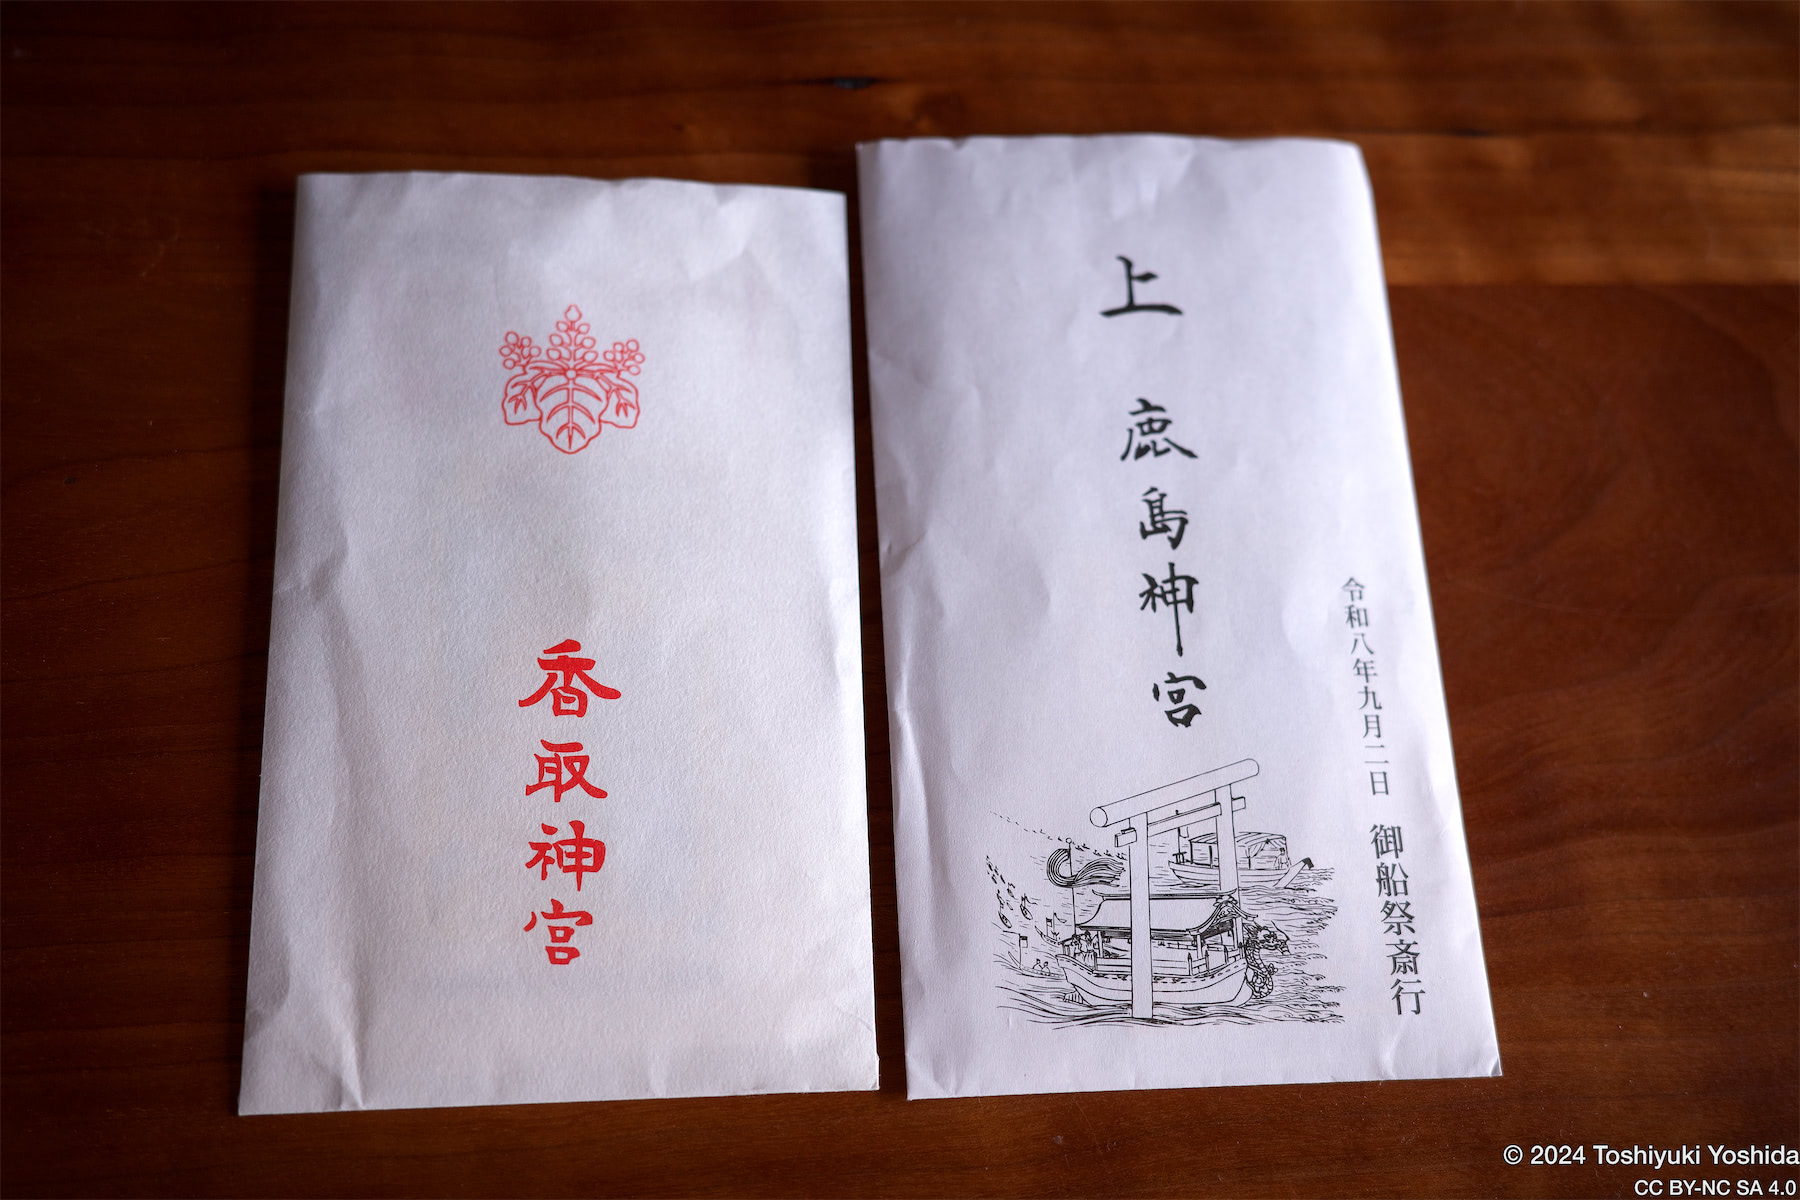 香取神宮
上 鹿島神宮
令和八年九月二日 御船祭斎行
© 2024 Toshiyuki Yoshida
CC BY-NC SA 4.0